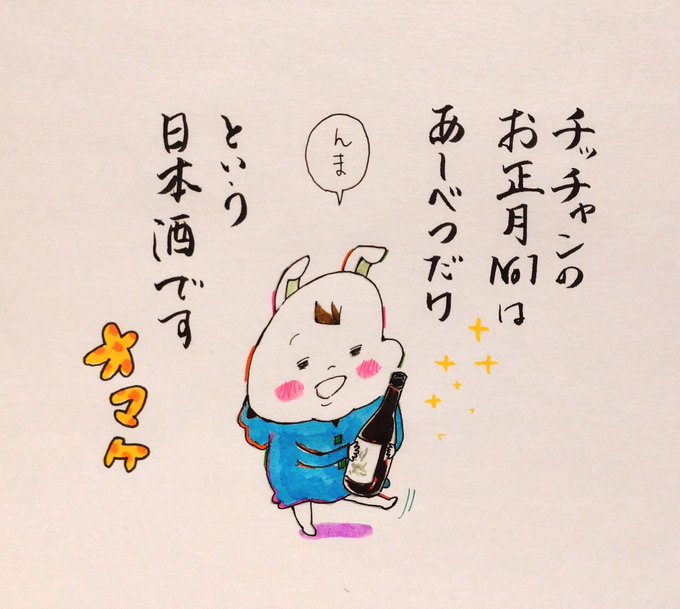 チッチャンの
お正月No1は
あーべつだり
という
日本酒です
んま
オマケ